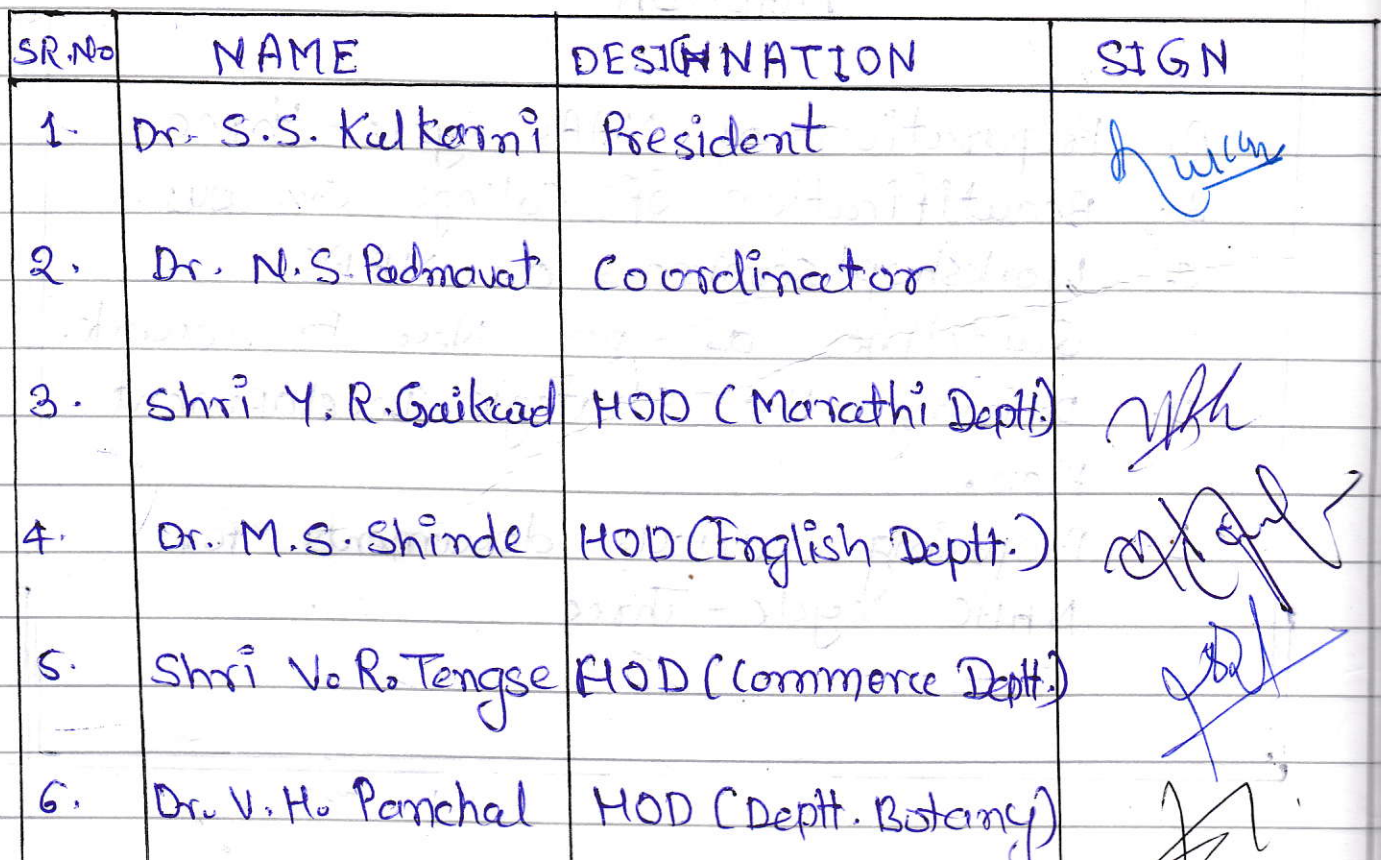 SR.No NAME DESIGNATION SIGN
1. Dr. S.S. Kulkarni President
2. Dr. N.S. Padmavat Coordinator
3. Shri Y.R. Gaikwad HOD (Marathi Deptt.)
4. Dr. M.S. Shinde HOD (English Deptt.)
5. Shri V.R. Tengse HOD (Commerce Deptt.)
6. Dr. V.H. Panchal HOD (Deptt. Botany)